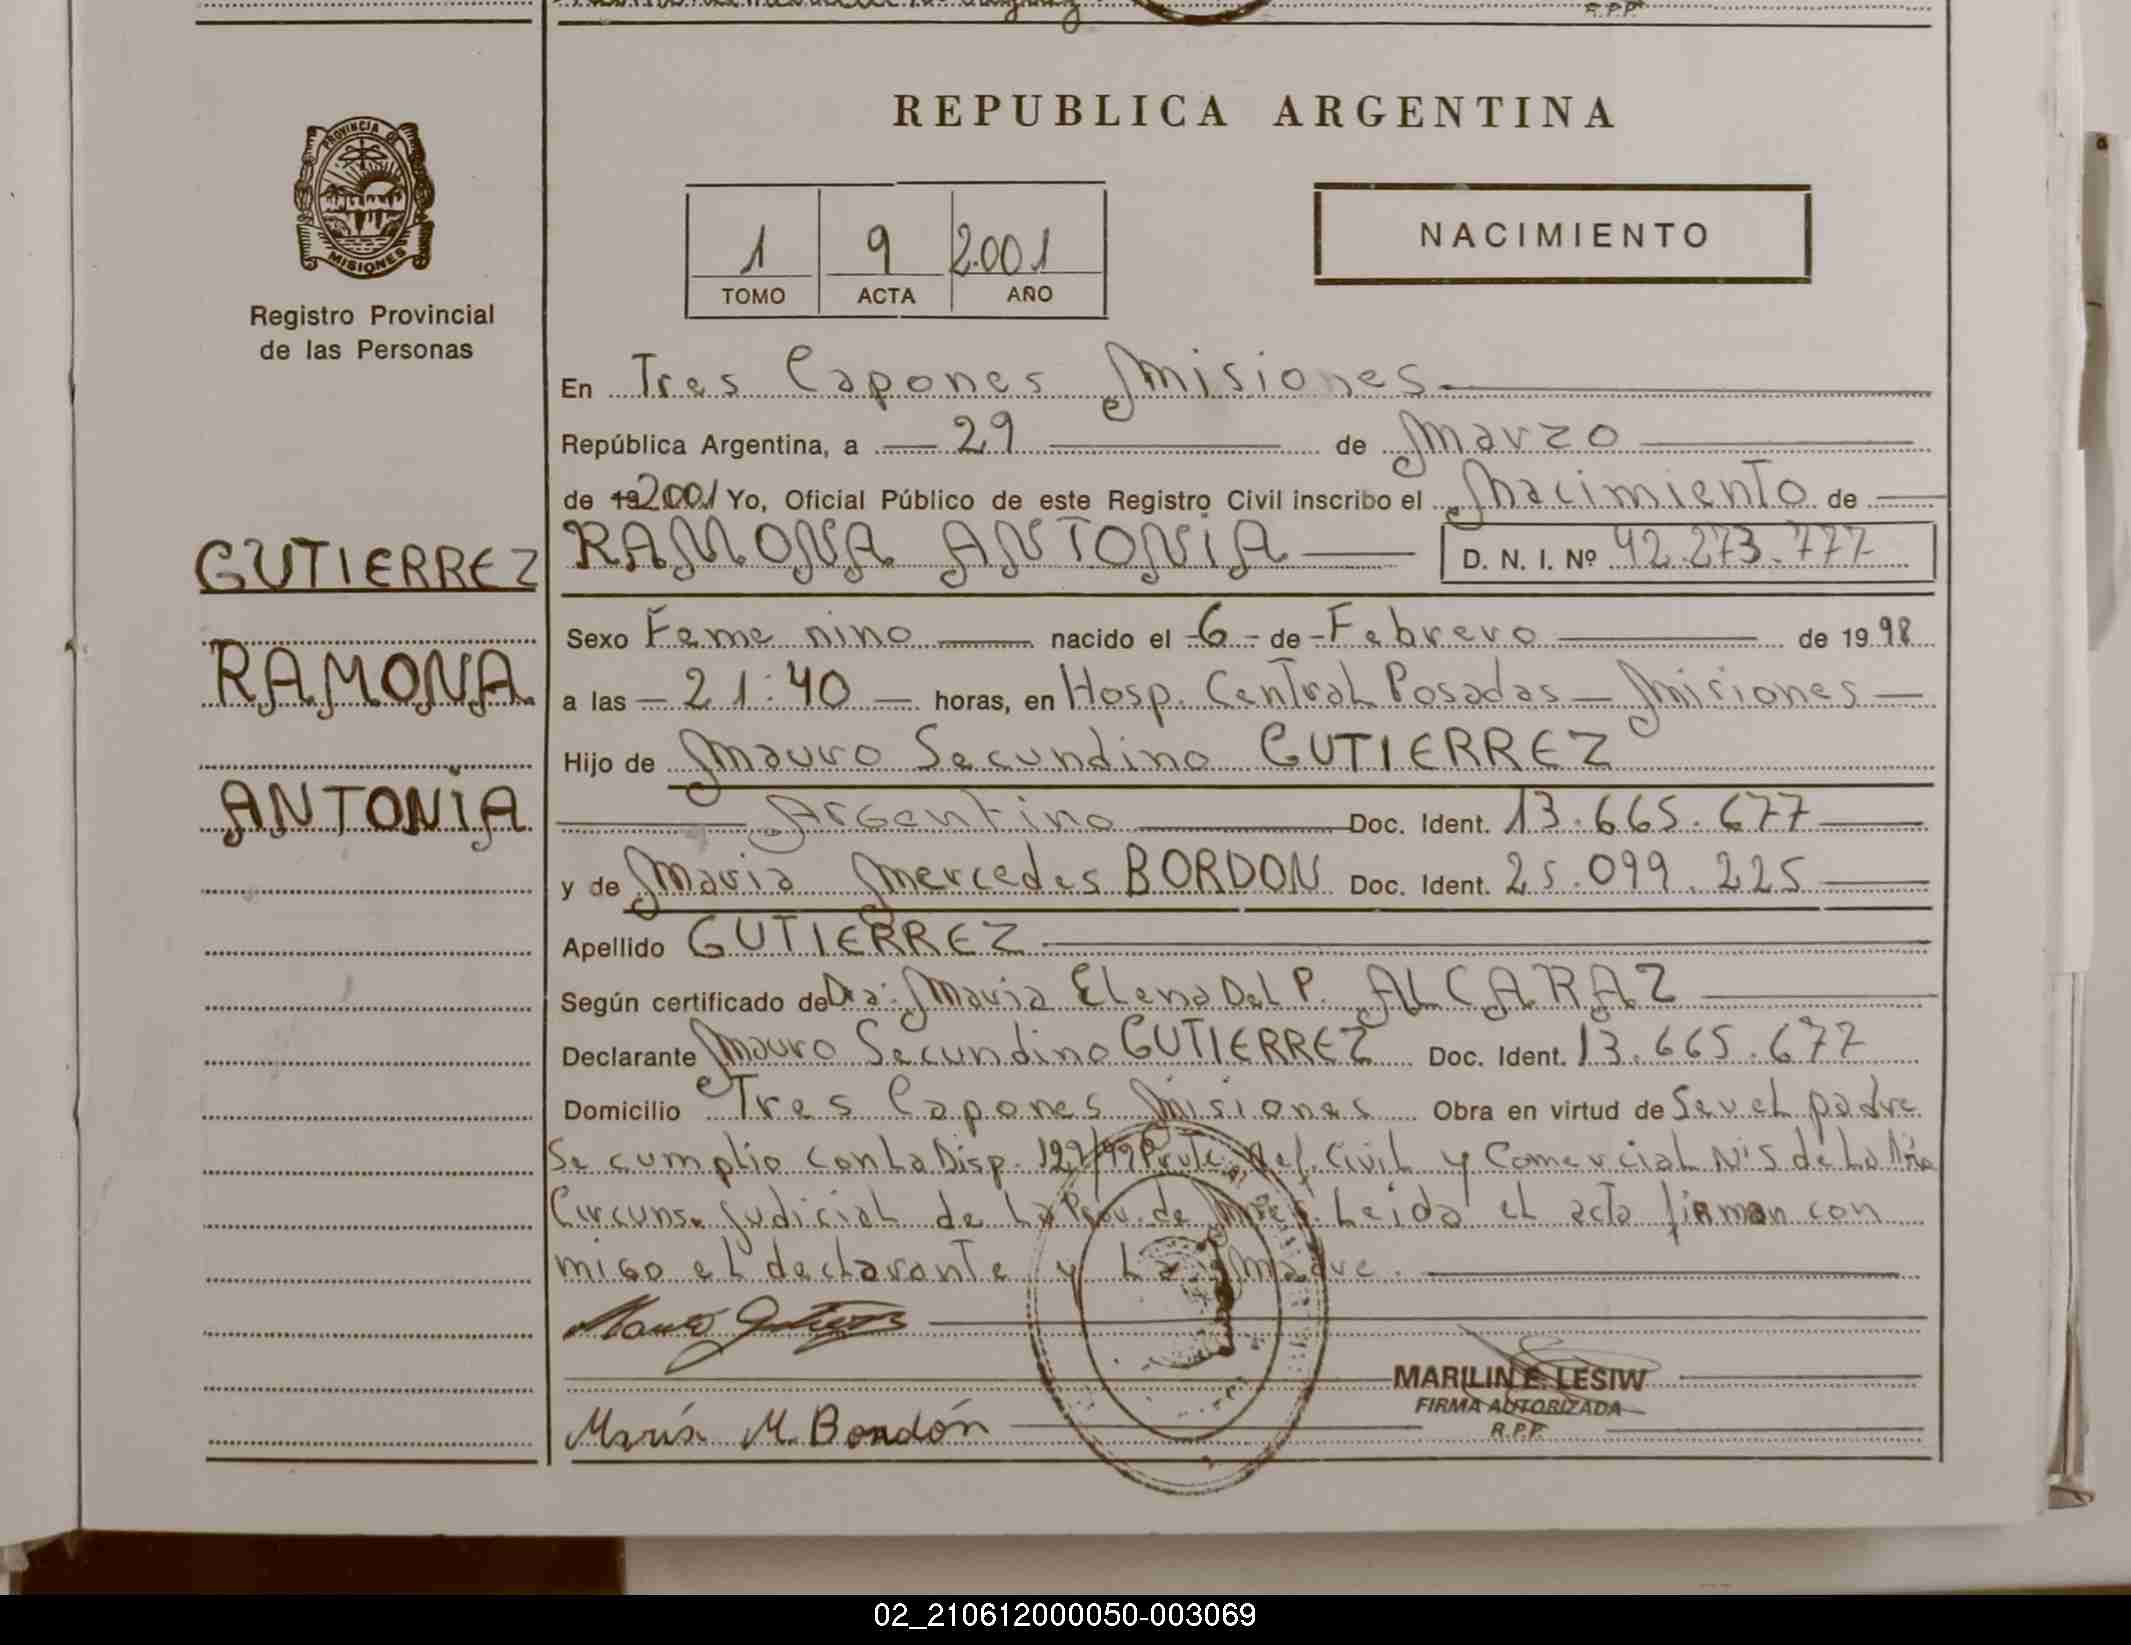 REPUBLICA ARGENTINA
PROVINCIA DE
MISIONES
Registro Provincial
de las Personas
1 9 2.001
TOMO ACTA AÑO
NACIMIENTO
En Tres Capones Misiones
República Argentina, a 29 de Marzo
de 192001 Yo, Oficial Público de este Registro Civil inscribo el Nacimiento de
GUTIERREZ
RAMONA
ANTONIA
RAMONA ANTONIA D. N. I. Nº 42.273.777
Sexo Femenino nacido el 6 de Febrero de 1998
a las 21:40 horas, en Hosp. Central Posadas - Misiones
Hijo de Mauro Secundino GUTIERREZ
Argentino Doc. Ident. 13.665.677
y de Maria Mercedes BORDON Doc. Ident. 25.099.225
Apellido GUTIERREZ
Según certificado de Dra. Maria Elena Del P. ALCARAZ
Declarante Mauro Secundino GUTIERREZ Doc. Ident. 13.665.677
Domicilio Tres Capones Misiones Obra en virtud de Ser el padre
Se cumplio con La Disp. Civil y Comercial Nº5 de La
Circuns. Judicial de La Prov. de Mnes. Leida el acta firman con
migo el declarante y La Madre.
María M. Bordón
MARILIN E. LESIW
FIRMA AUTORIZADA
R.P.P.
02_210612000050-003069